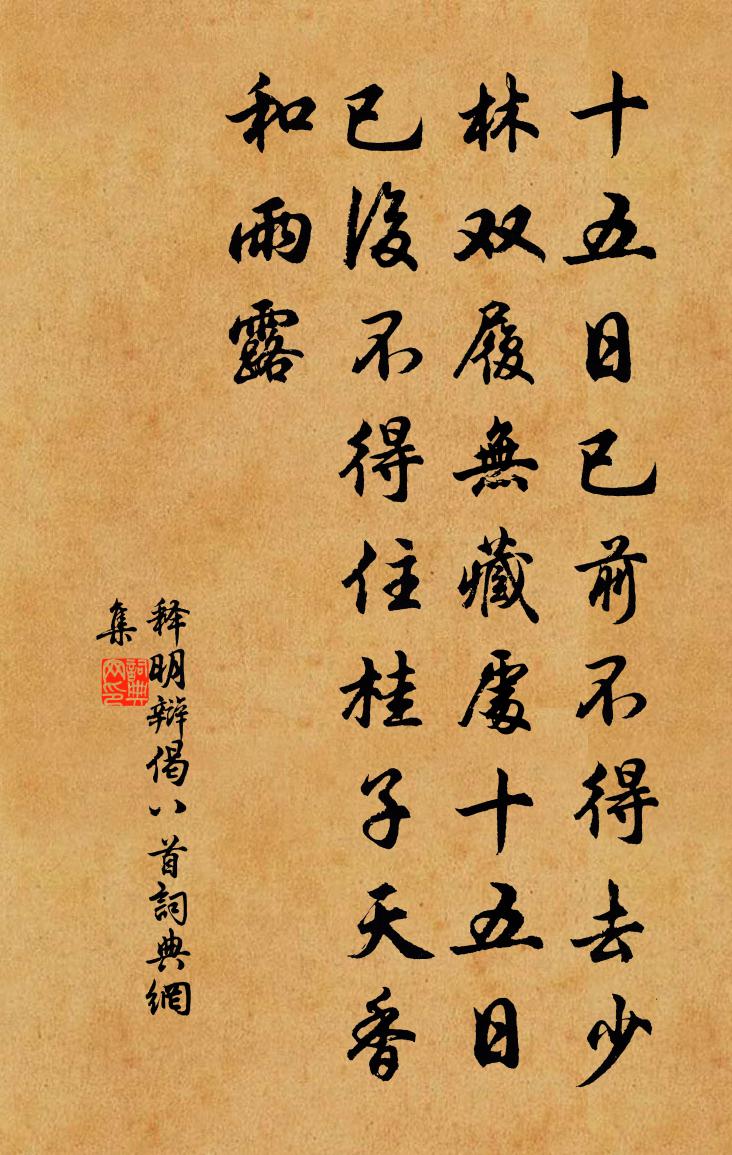 十五日已前不得去少
林双履無藏處十五日
已後不得住桂子天香
和雨露
释明辯偈八首詞典網
集
詞典网印